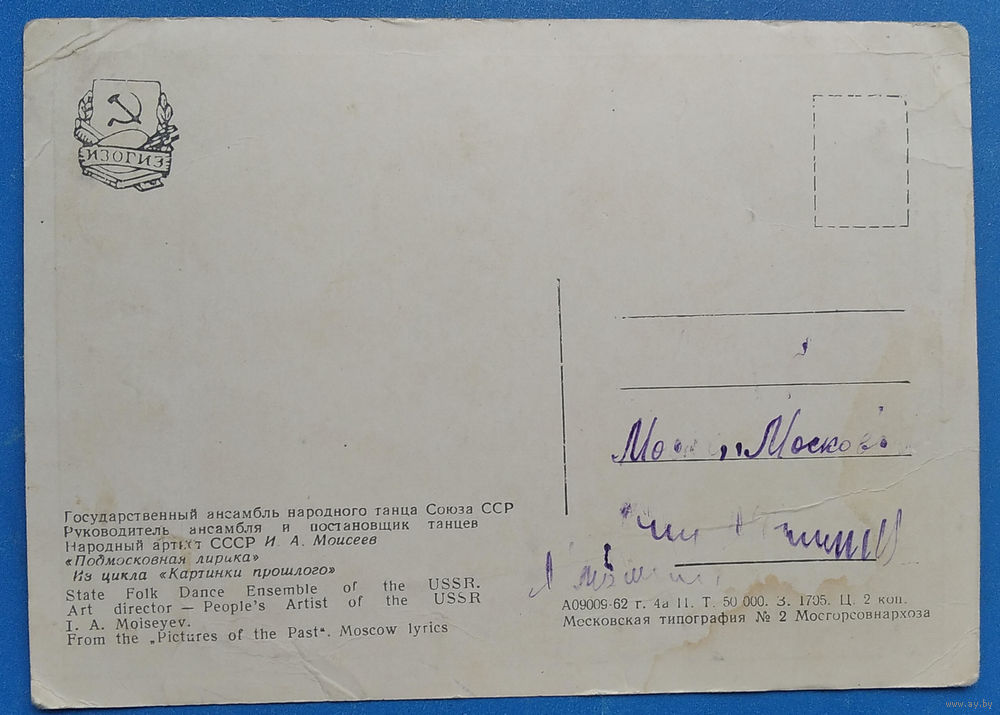 ИЗОГИЗ
Москов
Государственный ансамбль народного танца Союза ССР
Руководитель ансамбля и постановщик танцев
Народный артист СССР И. А. Моисеев
«Подмосковная лирика»
Из цикла «Картинки прошлого»
State Folk Dance Ensemble of the USSR.
Art director — People's Artist of the USSR
I. A. Moiseyev.
From the „Pictures of the Past“. Moscow lyrics
А09009-62 г. 4а П. Т. 50 000. З. 1705. Ц. 2 коп.
Месковская типография № 2 Мосгорсовнархоза
www.ay.by